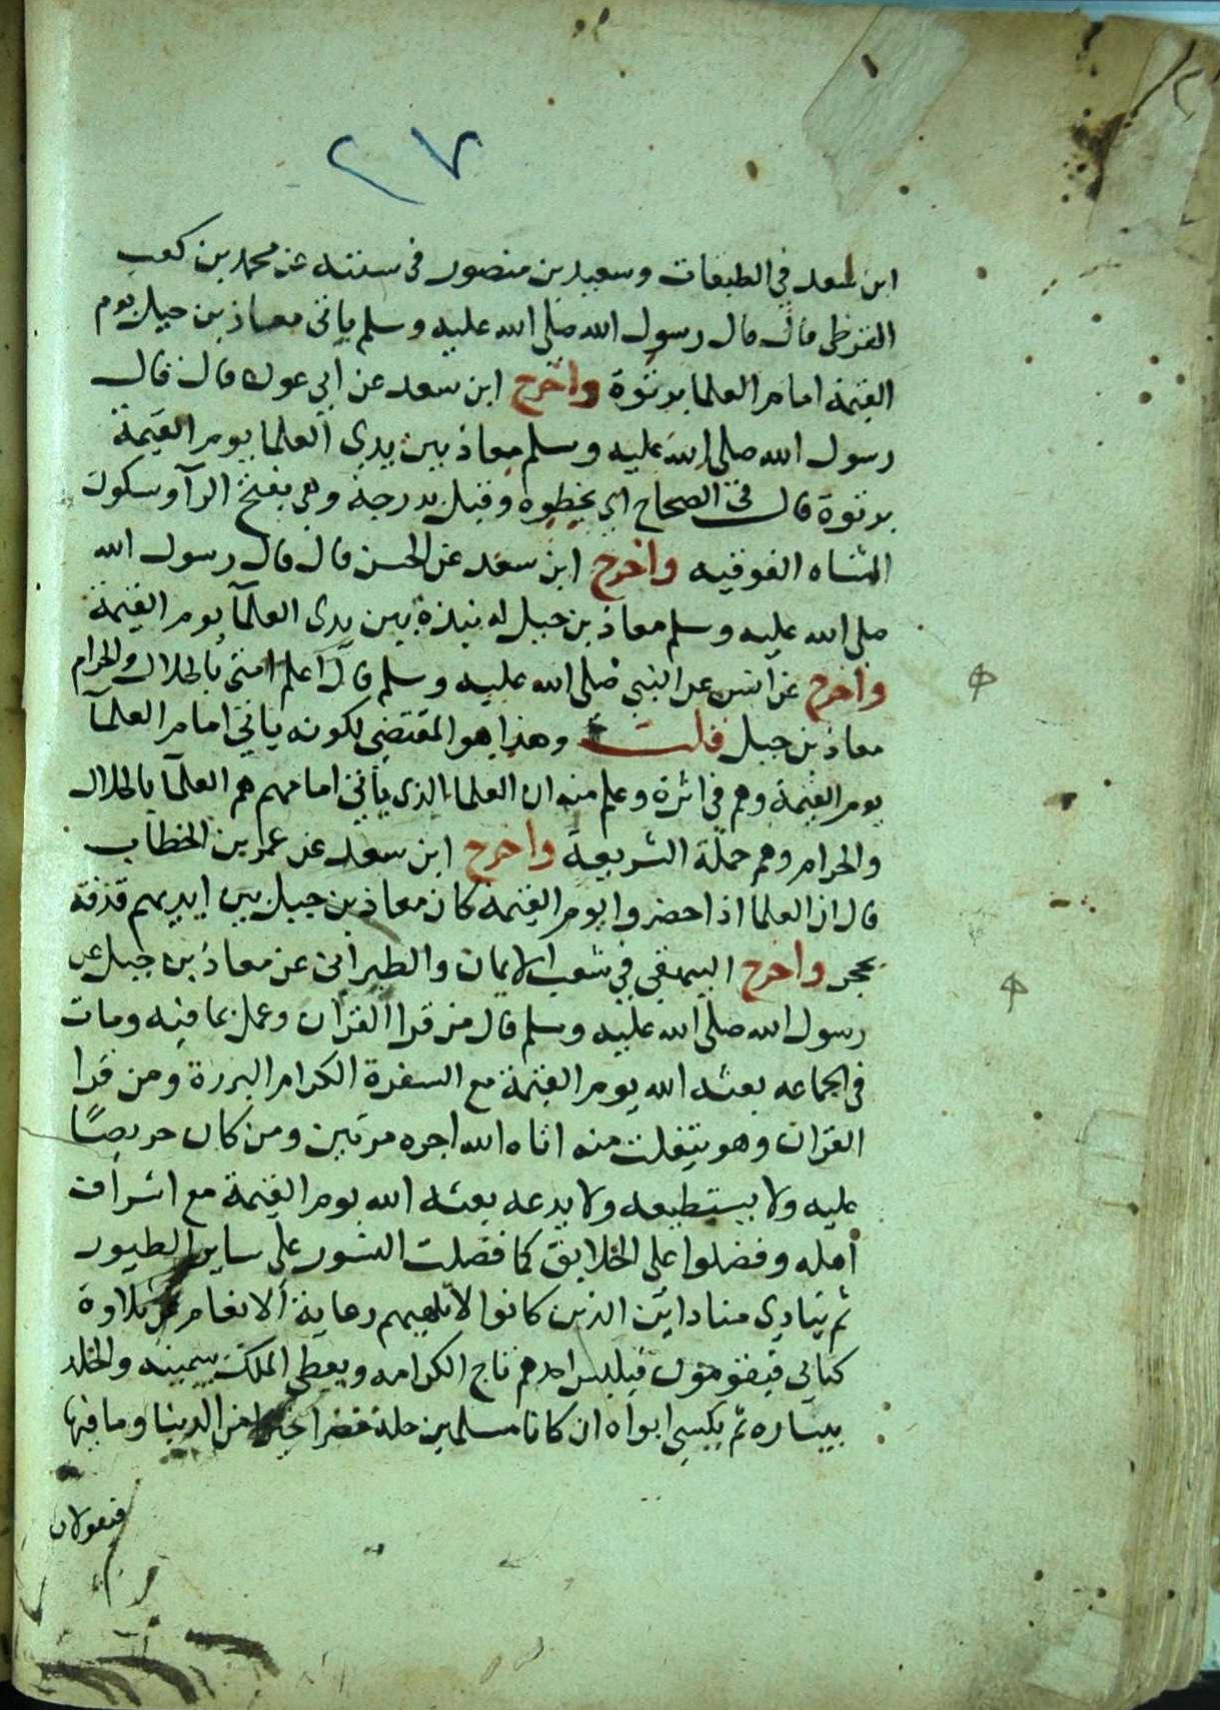 ٢٧
ابن سعد في الطبقات وسعيد بن منصور في سننه عن محمد بن كعب
القرظى قال قال رسول الله صلى الله عليه وسلم ياتى معاذ بن جبل يوم
القيمة امام العلما برتوة واخرج ابن سعد عن ابى عون قال قال
رسول الله صلى الله عليه وسلم معاذ بين يدى العلما يوم القيمة
برتوة قال فى الصحاح اى بخطوه وقيل بدرجة وهى بفتح الرآ وسكون
المثناه الفوقيه واخرج ابن سعد عن الحسن قال قال رسول الله
صلى الله عليه وسلم معاذ بن جبل له نبذة بين يدى العلمآ يوم القيمة
واخرج عن انس عن النبى صلى الله عليه وسلم قال اعلم امتى بالحلال والحرام
معاذ بن جبل قلت وهذا هو المقتضى لكونه ياتى امام العلمآ
يوم القيمة وهم فى اثرة وعلم منه ان العلما الذى ياتى امامهم هم العلمآ بالحلال
والحرام وهم حملة الشريعة واخرج ابن سعد عن عمر بن الخطاب
قال ان العلما اذا حضروا يوم القيمة كان معاذ بن جبل بين ايديهم قذفة
بحجر واخرج البيهقى فى شعب الايمان والطبرانى عن معاذ بن جبل عن
رسول الله صلى الله عليه وسلم قال من قرا القران وعمل بما فيه ومات
فى الجماعه بعثه الله يوم القيمة مع السفرة الكرام البررة ومن قرا
القران وهو يتفلت منه اتاه الله اجره مرتين ومن كان حريصًا
عليه ولا يستطيعه ولا يدعه بعثه الله يوم القيمة مع اشراف
اهله وفضلوا على الخلايق كما فضلت النسور على ساير الطيور
ثم ينادى مناد اين الذين كانوا لا تلهيهم رعاية الانعام عن تلاوة
كتابى فيقومون فيلبس احدهم تاج الكرامه ويعطى الملك بيمينه والخلد
بيساره ثم يكسى ابواه ان كانا مسلمين حلة خيرا من الدنيا وما فيها
فيقولان